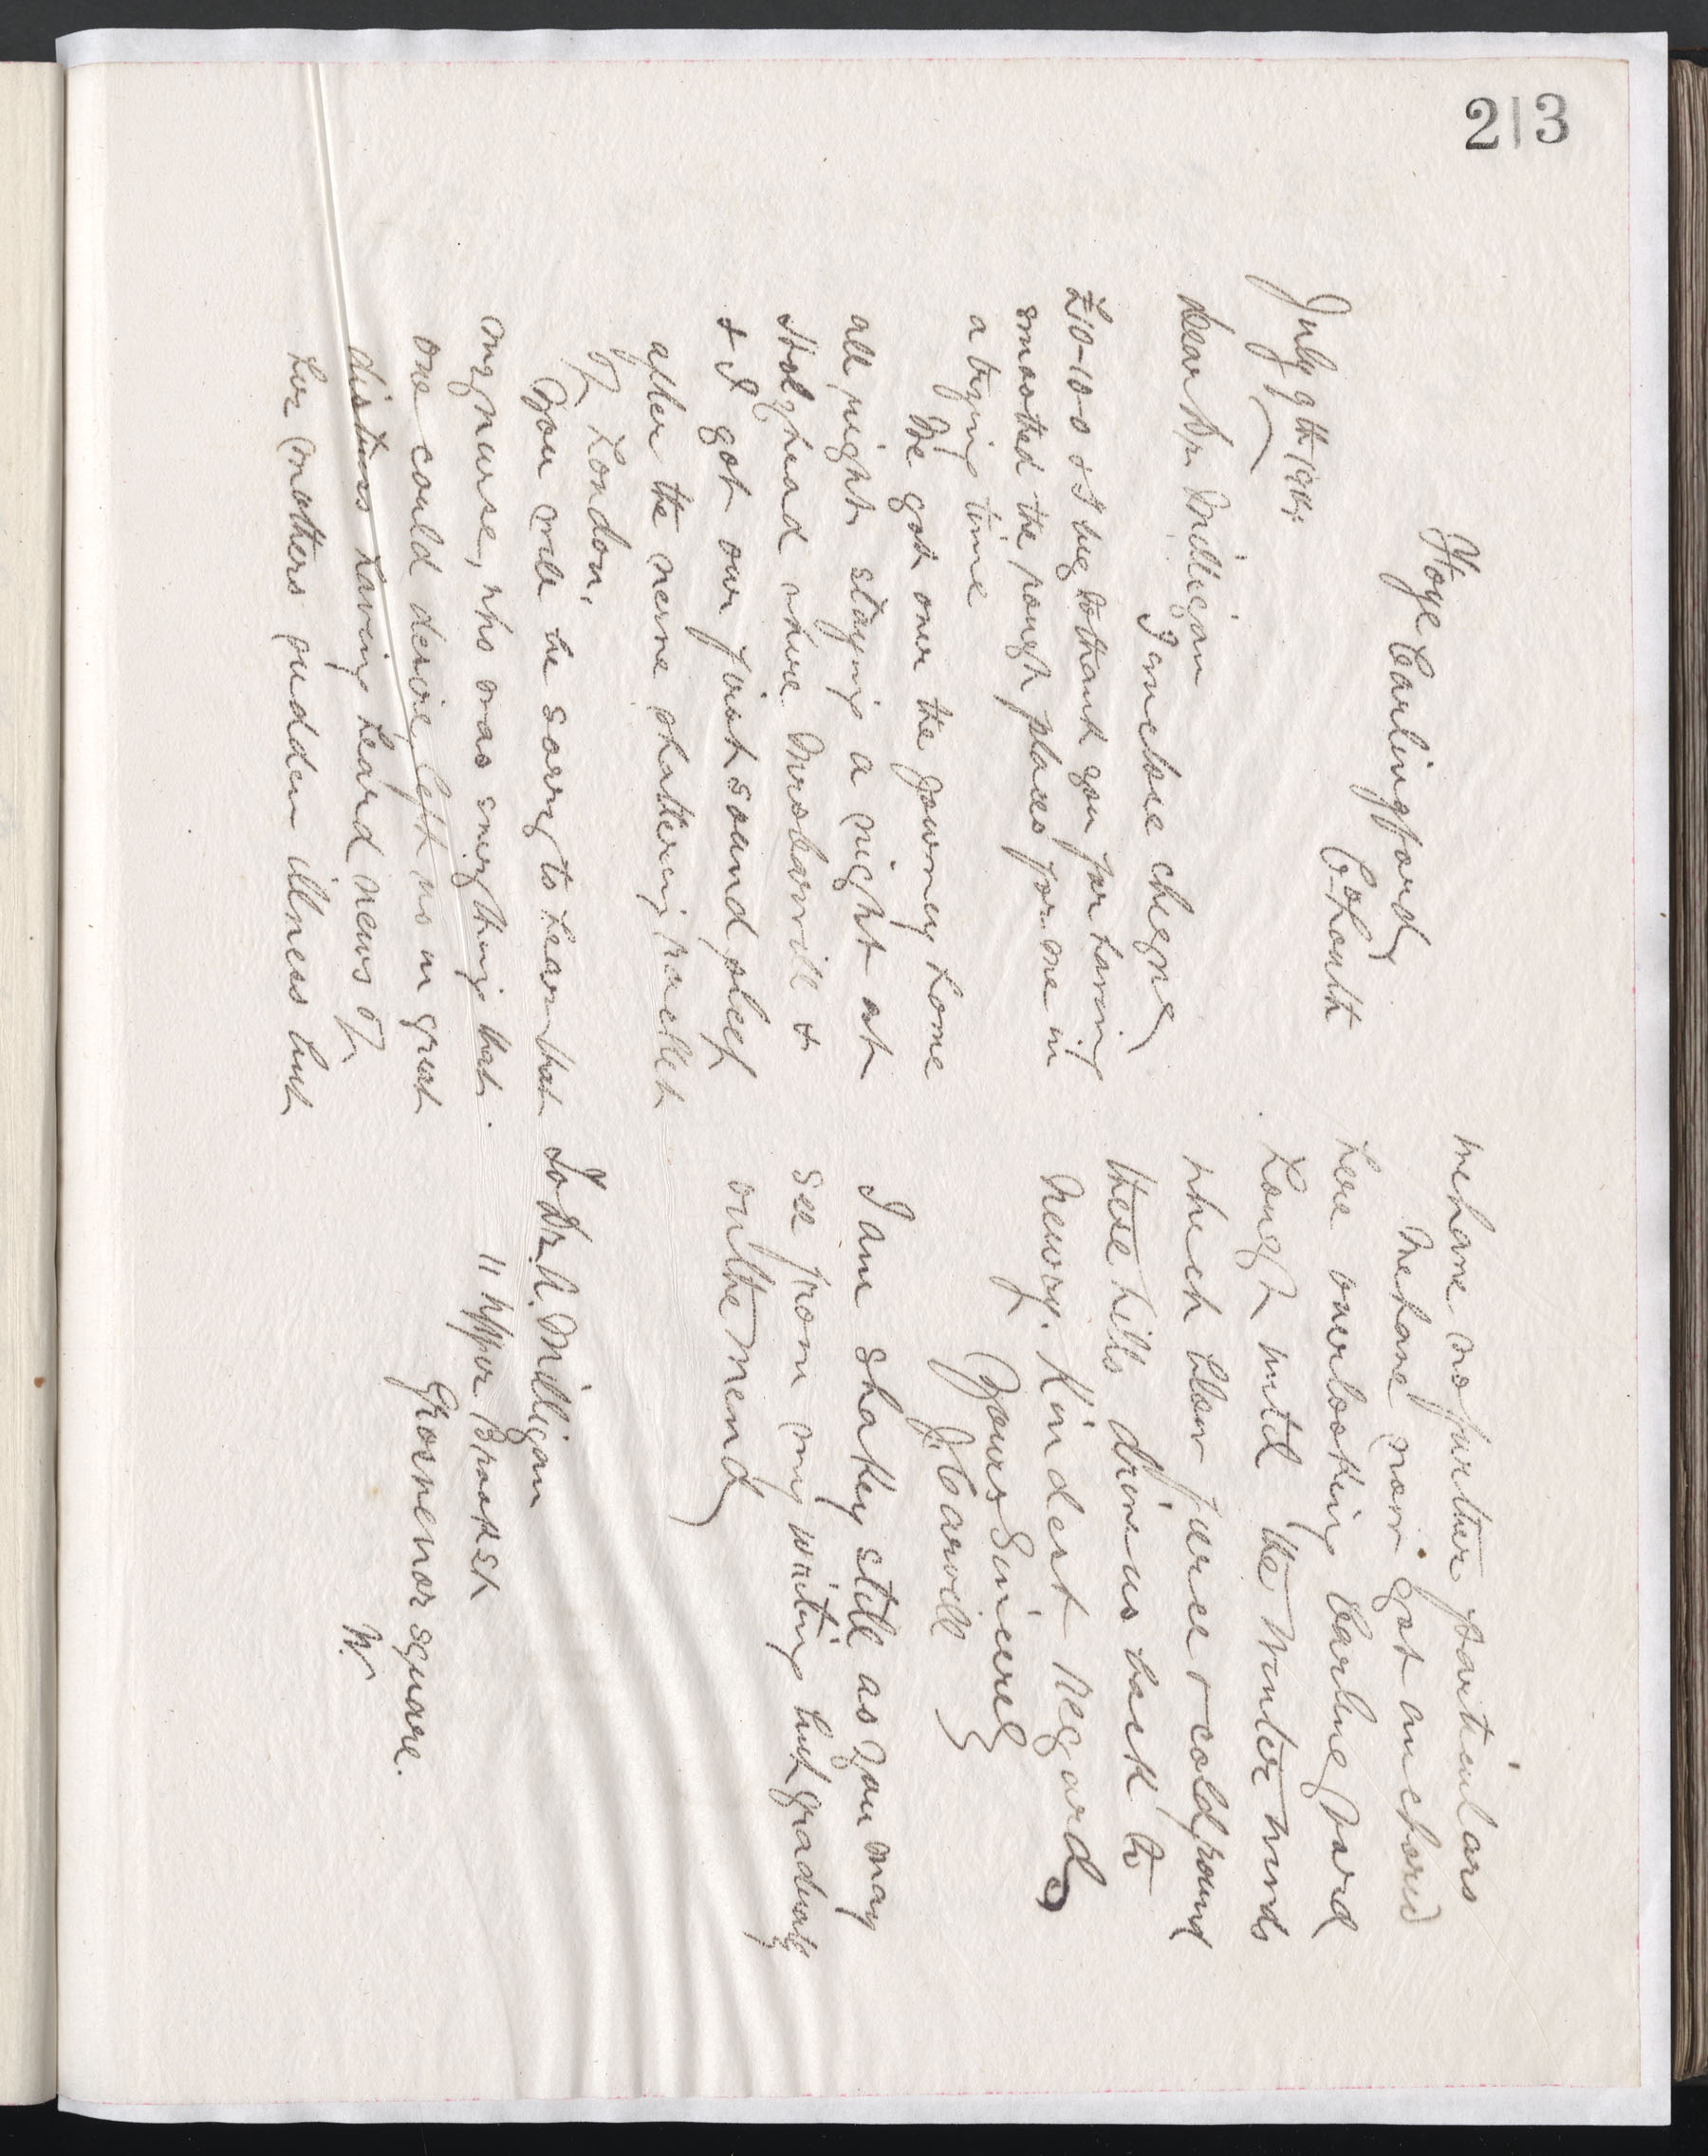 213
Ffoye Carlingford
Co Louth
July 9th 1904.
Dear Dr. Milligan
I enclose cheque
£10-10-0 & I beg to thank you for having
smoothed the rough places for me in
a trying time
We got over the journey home
all right staying a night at
Holyhead where Mrs Carvill &
& I got our first sound sleep
after the nerve shattering racket
of London.
You will be sorry to hear that
my nurse, who was everything that
one could desire, left us in great
distress having heard news of
her mothers sudden illness but
we have no further particulars
We have now got anchored
here overlooking Carlingford
Lough until the Winter winds
which blow fierce & cold round
these hills drive us back to
Newry. Kindest regards
Yours Sincerely
J. Carvill
I am shakey still as you may
see from my writing but gradually
on the mend
To Dr. W. Milligan
11 Upper Brook St
Grosvenor square.
W.